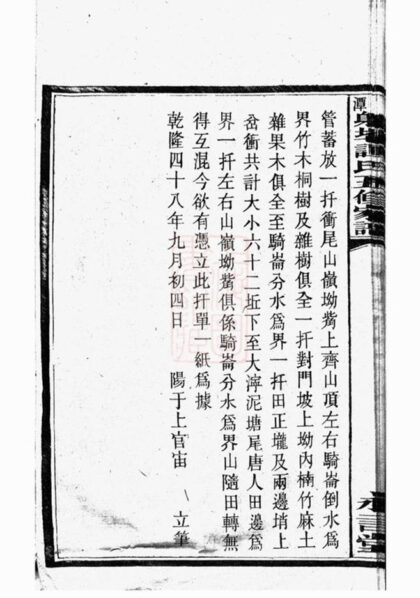 管蓄放一扦衝尾山嶺坳觜上齊山頂左右騎崙倒水爲
界竹木桐樹及雜樹俱全一扦對門坡上坳內楠竹麻土
雜果木俱全至騎崙分水爲界一扦田正壠及兩邊塝上
岔衝共計大小六十二坵下至大濘泥塘尾唐人田邊爲
界一扦左右山嶺坳觜俱係騎崙分水爲界山隨田轉無
得互混今欲有憑立此扦單一紙爲據
乾隆四十八年九月初四日 陽于上官宙 立筆